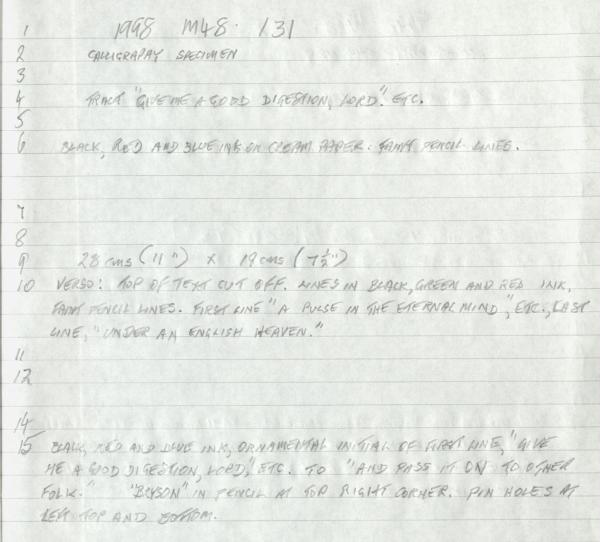 1 1998 M48. 131
2 CALLIGRAPAY SPECIMEN
3
4 TRACT "GIVE ME A GOOD DIGESTION, LORD". ETC.
5
6 BLACK, RED AND BLUE INK ON CREAM PAPER. FAINT PENCIL LINES.
7
8
9 28 cms (11") x 19 cms (7 1/2")
10 VERSO: TOP OF TEXT CUT OFF. LINES IN BLACK, GREEN AND RED INK,
FAINT PENCIL LINES. FIRST LINE "A PULSE IN THE ETERNAL MIND", ETC., LAST
LINE, "UNDER AN ENGLISH HEAVEN."
11
12
14
15 BLACK, RED AND BLUE INK, ORNAMENTAL INITIAL OF FIRST LINE, "GIVE
ME A GOOD DIGESTION, LORD," ETC. TO "AND PASS IT ON TO OTHER
FOLK." IN PENCIL AT TOP RIGHT CORNER. PIN HOLES AT
LEFT TOP AND BOTTOM.